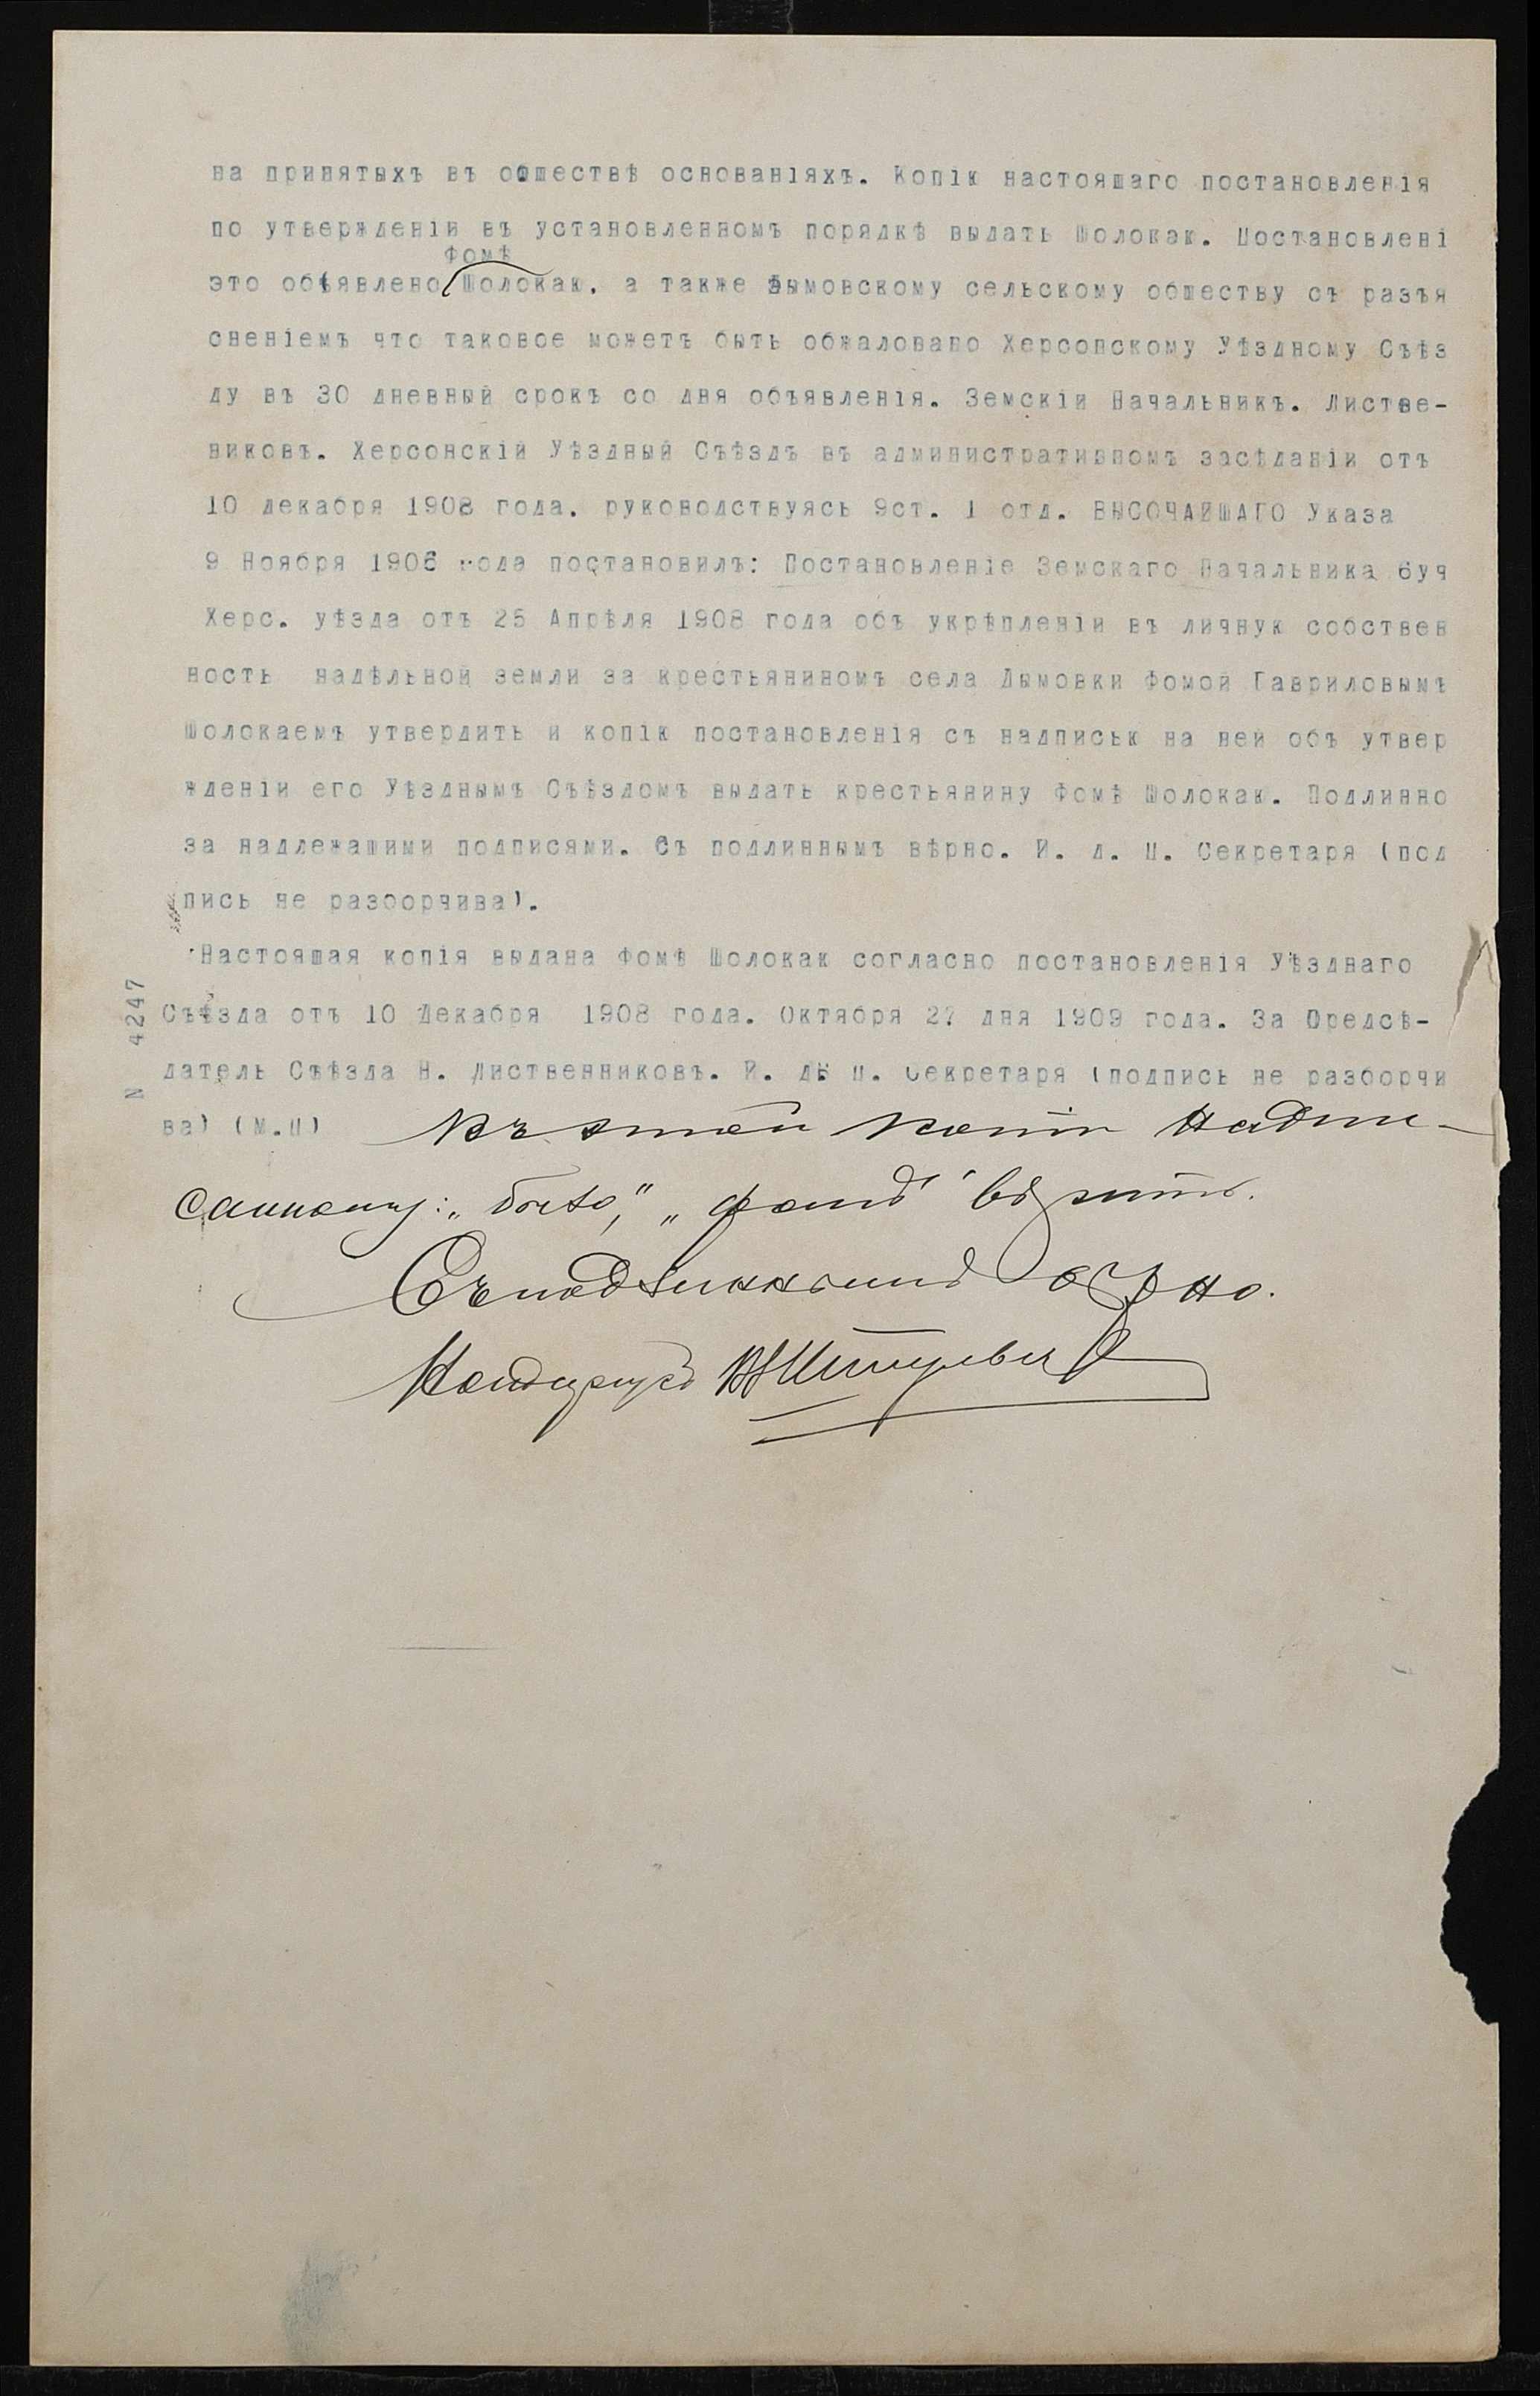 на принятыхъ въ обществѣ основаніяхъ. Копію настоящаго постановленія
по утвержденіи въ установленномъ порядкѣ выдать Шолокаю. Постановлені
Фомѣ
это объявлено Шолокаю, а также Дымовскому сельскому обществу съ разъя
сненіемъ что таковое можетъ быть обжаловано Херсонскому Уѣздному Съѣз
ду въ 30 дневный срокъ со дня объявленія. Земскій Начальникъ. Листве-
никовъ. Херсонскій Уѣздный Съѣздъ въ административномъ засѣданіи отъ
10 декабря 1908 года. руководствуясь 9ст. 1 отд. ВЫСОЧАЙШАГО Указа
9 Ноября 1906 года постановилъ: Постановленіе Земскаго Начальника 6уч
Херс. уѣзда отъ 25 Апрѣля 1908 года объ укрѣпленіи въ личную собствен
ность надѣльной земли за крестьяниномъ села Дымовки Фомой Гавриловымъ
Шолокаемъ утвердить и копію постановленія съ надписью на ней объ утвер
жденіи его Уѣзднымъ Съѣздомъ выдать крестьянину Фомѣ Шолокаю. Подлинно
за надлежащими подписями. Съ подлиннымъ вѣрно. И. д. П. Секретаря (под
пись не разборчива).
Настоящая копія выдана Фомѣ Шолокаю согласно постановленія Уѣзднаго
Съѣзда отъ 10 Декабря 1908 года. Октября 27 дня 1909 года. За Предсѣ-
датель Съѣзда Н. Лиственниковъ. И. д. П. Секретаря (подпись не разборчи
ва) (М.П) Въ этой копіи надпи-
санному: „ „ Фомѣ" вѣрить.
Съ подлиннымъ вѣрно.
N 4247